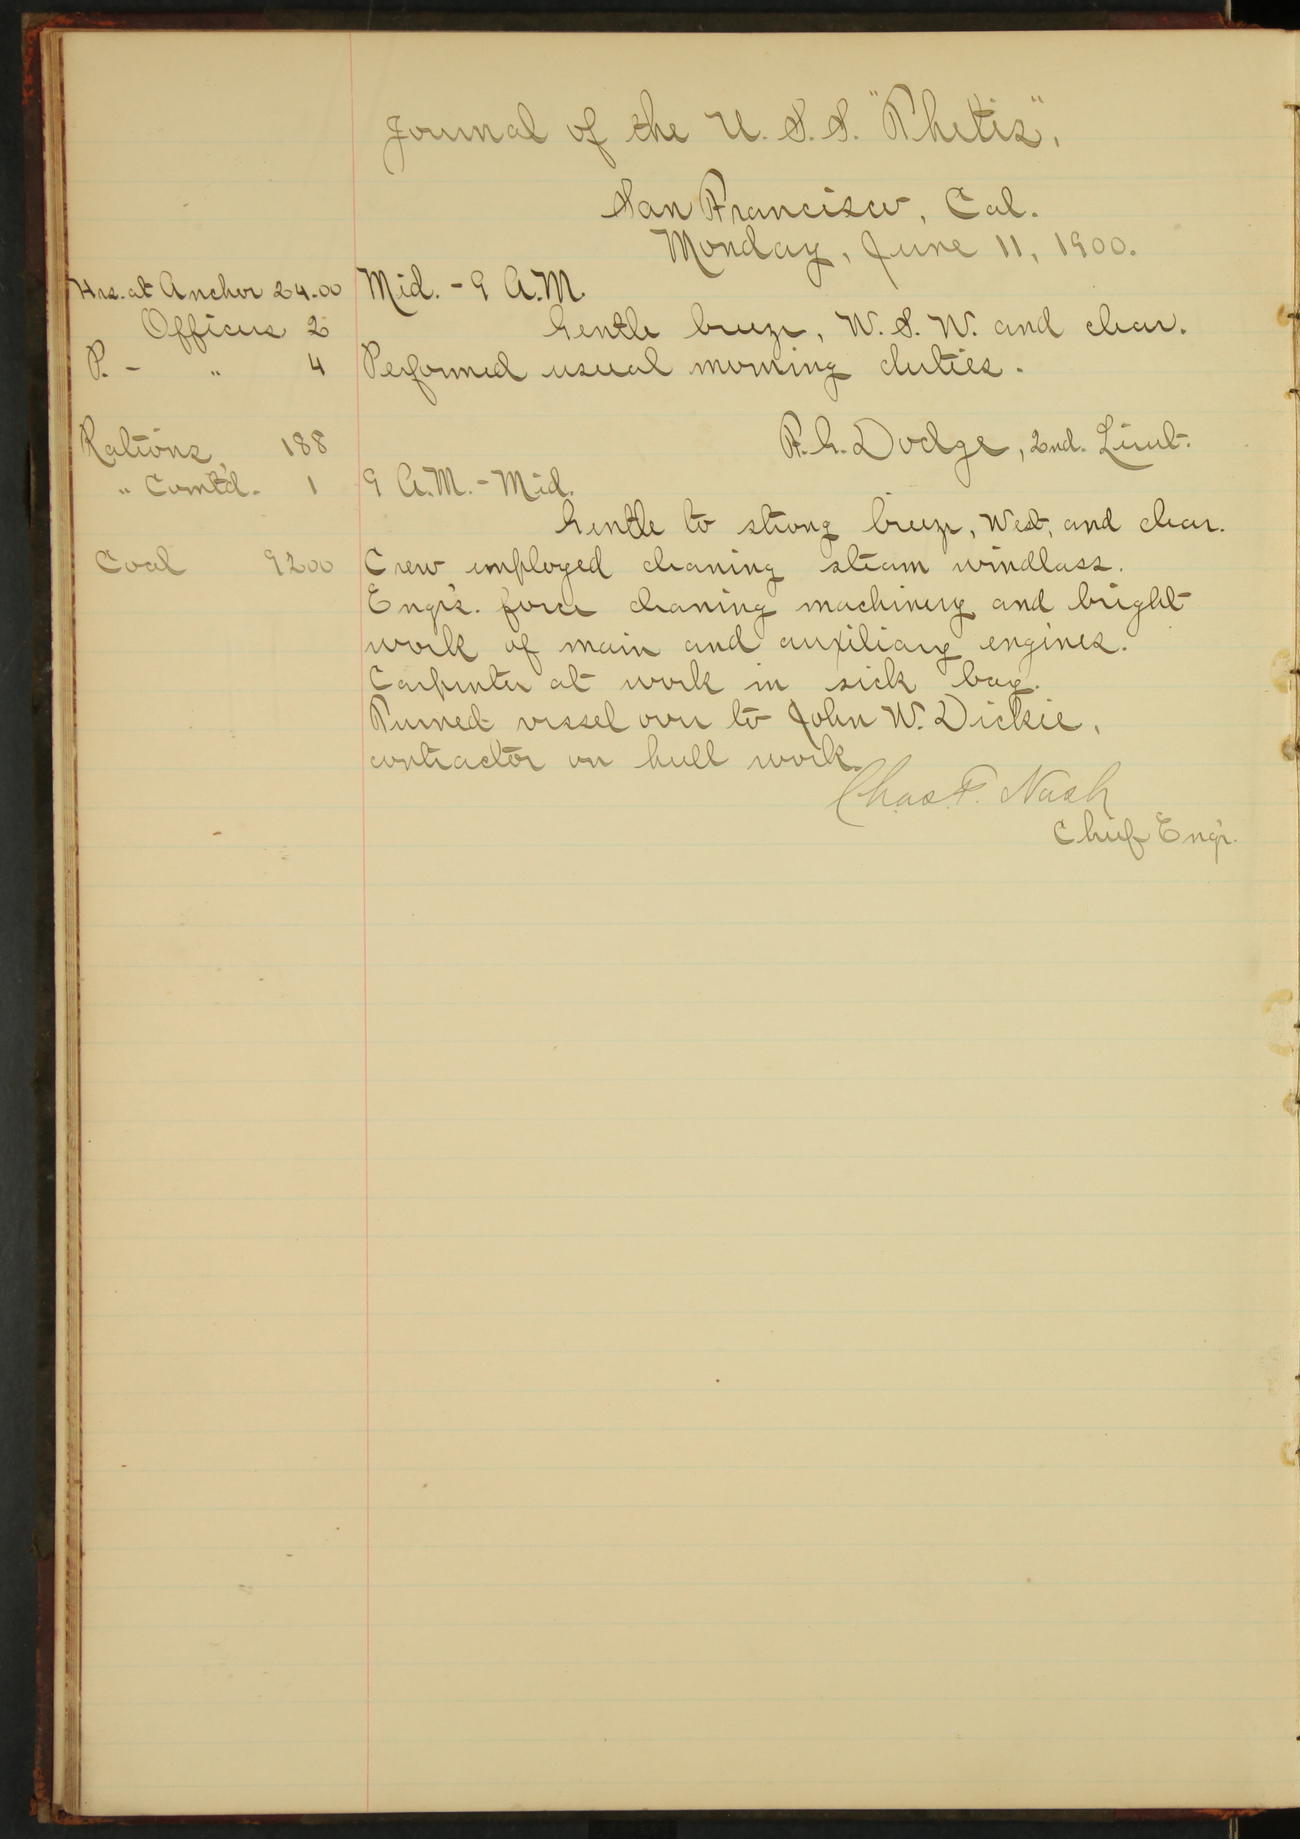 Journal of the U. S. S. "Thetis".
San Francisco, Cal.
Monday, June 11, 1900.
Hrs. at Anchor 24.00
Officers 2
P. - " 4
Rations 188
" Comt'd. 1
Coal 9200
Mid. - 9 A.M.
Gentle breeze, W. S. W. and clear.
Performed usual morning duties.
F. G. Dodge, 2nd. Lieut.
9 A.M. - Mid.
Gentle to strong breeze, West, and clear.
Crew employed cleaning steam windlass.
Engr's. force cleaning machinery and bright
work of main and auxiliary engines.
Carpenter at work in sick bay.
Turned vessel over to John W. Dickie,
contractor on hull work.
Chas. F. Nash
Chief Engr.